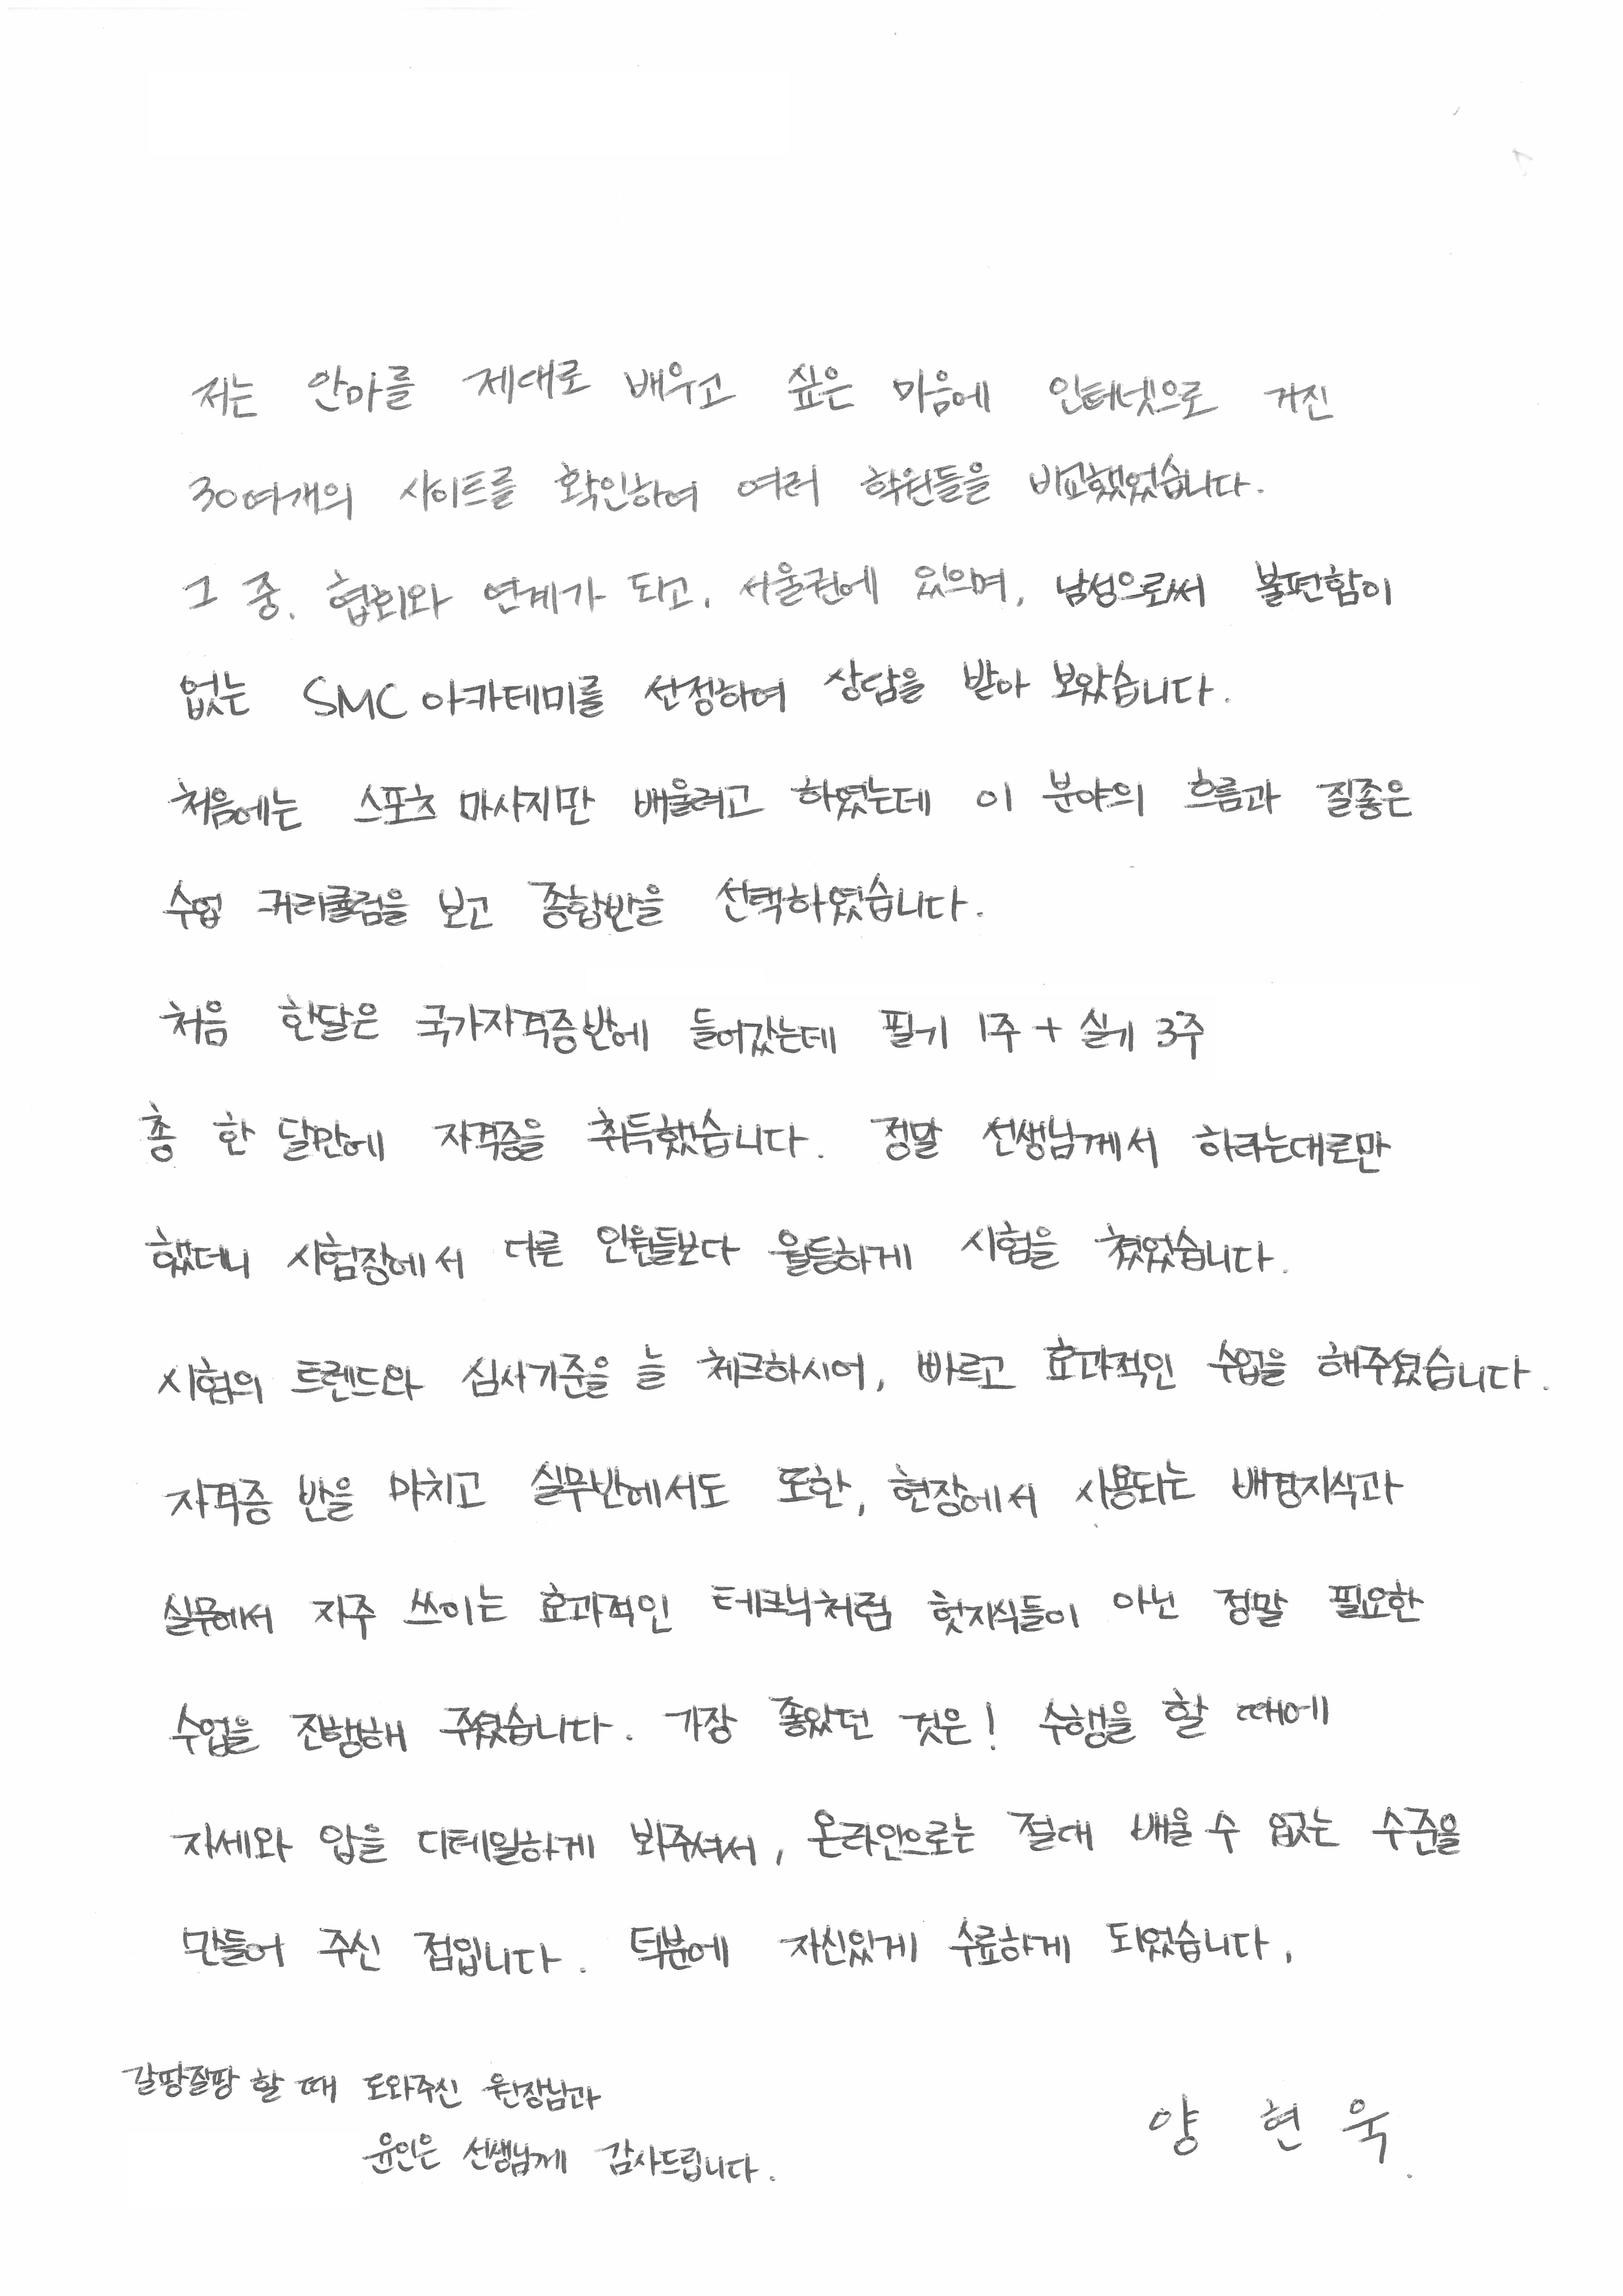 저는 안마를 제대로 배우고 싶은 마음에 인터넷으로 거진
30여개의 사이트를 확인하여 여러 학원들을 비교했었습니다.
그 중. 협회와 연계가 되고, 서울권에 있으며, 남성으로써 불편함이
없는 SMC 아카데미를 선정하여 상담을 받아 보았습니다.
처음에는 스포츠 마사지만 배울려고 하였는데 이 분야의 흐름과 질좋은
수업 커리큘럼을 보고 종합반을 선택하였습니다.
처음 한달은 국가자격증반에 들어갔는데 필기 1주 + 실기 3주
총 한 달만에 자격증을 취득했습니다. 정말 선생님께서 하라는대로만
했더니 시험장에서 다른 인원들보다 월등하게 시험을 쳤었습니다.
시험의 트렌드와 심사기준을 늘 체크하시어, 빠르고 효과적인 수업을 해주셨습니다.
자격증 반을 마치고 실무반에서도 또한, 현장에서 사용되는 배경지식과
실무에서 자주 쓰이는 효과적인 테크닉처럼 헛지식들이 아닌 정말 필요한
수업을 진행해 주셨습니다. 가장 좋았던 것은! 수행을 할 때에
자세와 압을 디테일하게 봐주셔서, 온라인으로는 절대 배울 수 없는 수준을
만들어 주신 점입니다. 덕분에 자신있게 수료하게 되었습니다.
갈팡질팡 할 때 도와주신 원장님과
윤인은 선생님께 감사드립니다.
양 현 욱.